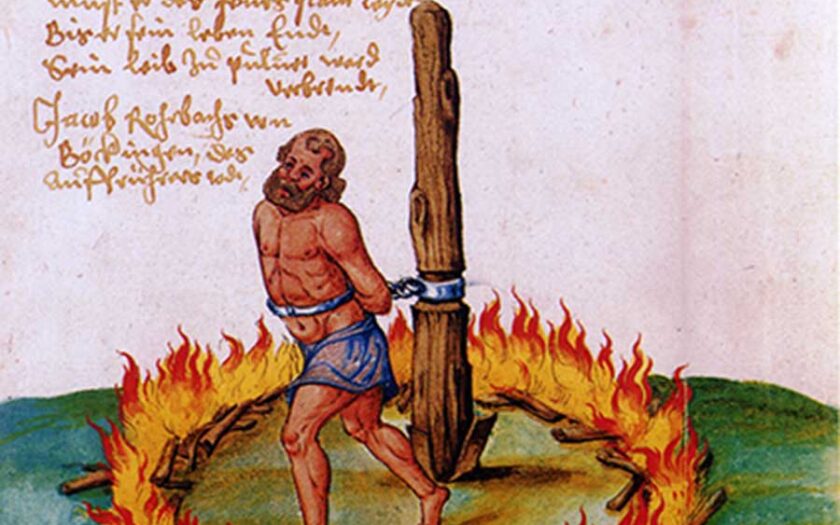 er des
Bis er sein leben Endt,
Sein leib zu puluer ward
verbrendt,
Jacob Rohrbachs von
Böckingen, des
auffrührers todt,